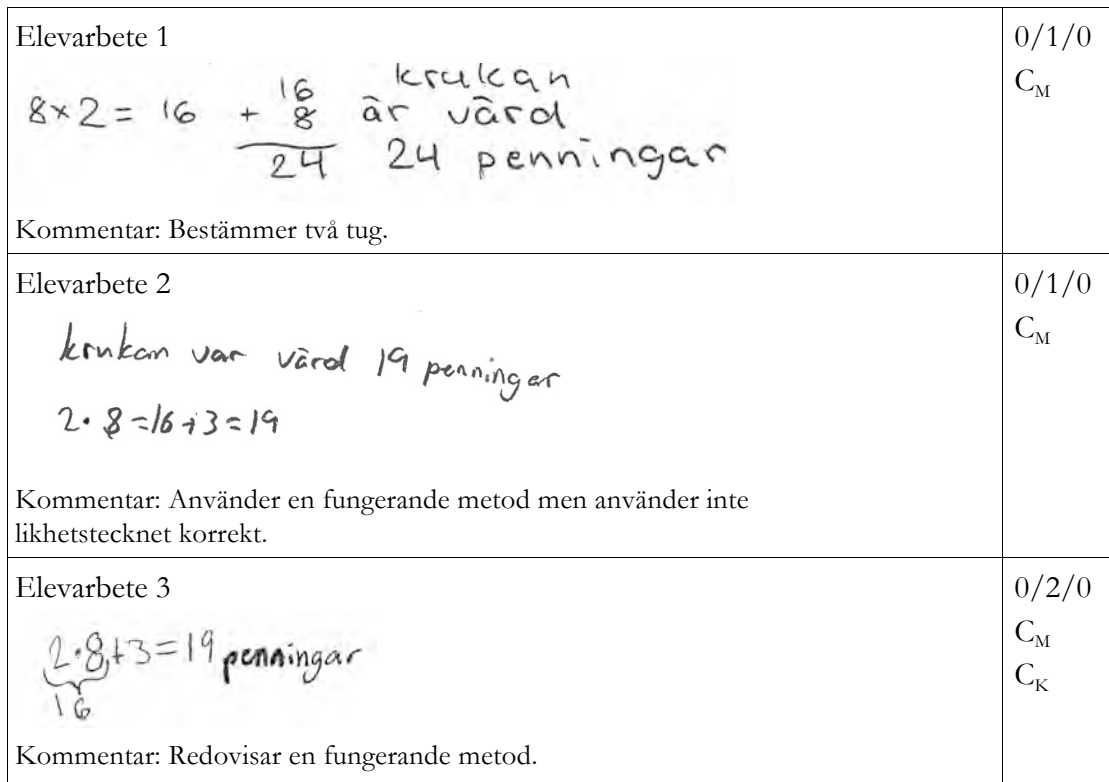 Elevarbete 1
0/1/0
C_M
8×2= 16 + 16 krukan
8 är värd
24 24 penningar
Kommentar: Bestämmer två tug.
Elevarbete 2
0/1/0
C_M
krukan var värd 19 penningar
2·8=16+3=19
Kommentar: Använder en fungerande metod men använder inte
likhetstecknet korrekt.
Elevarbete 3
0/2/0
C_M
C_K
2·8+3=19 penningar
16
Kommentar: Redovisar en fungerande metod.